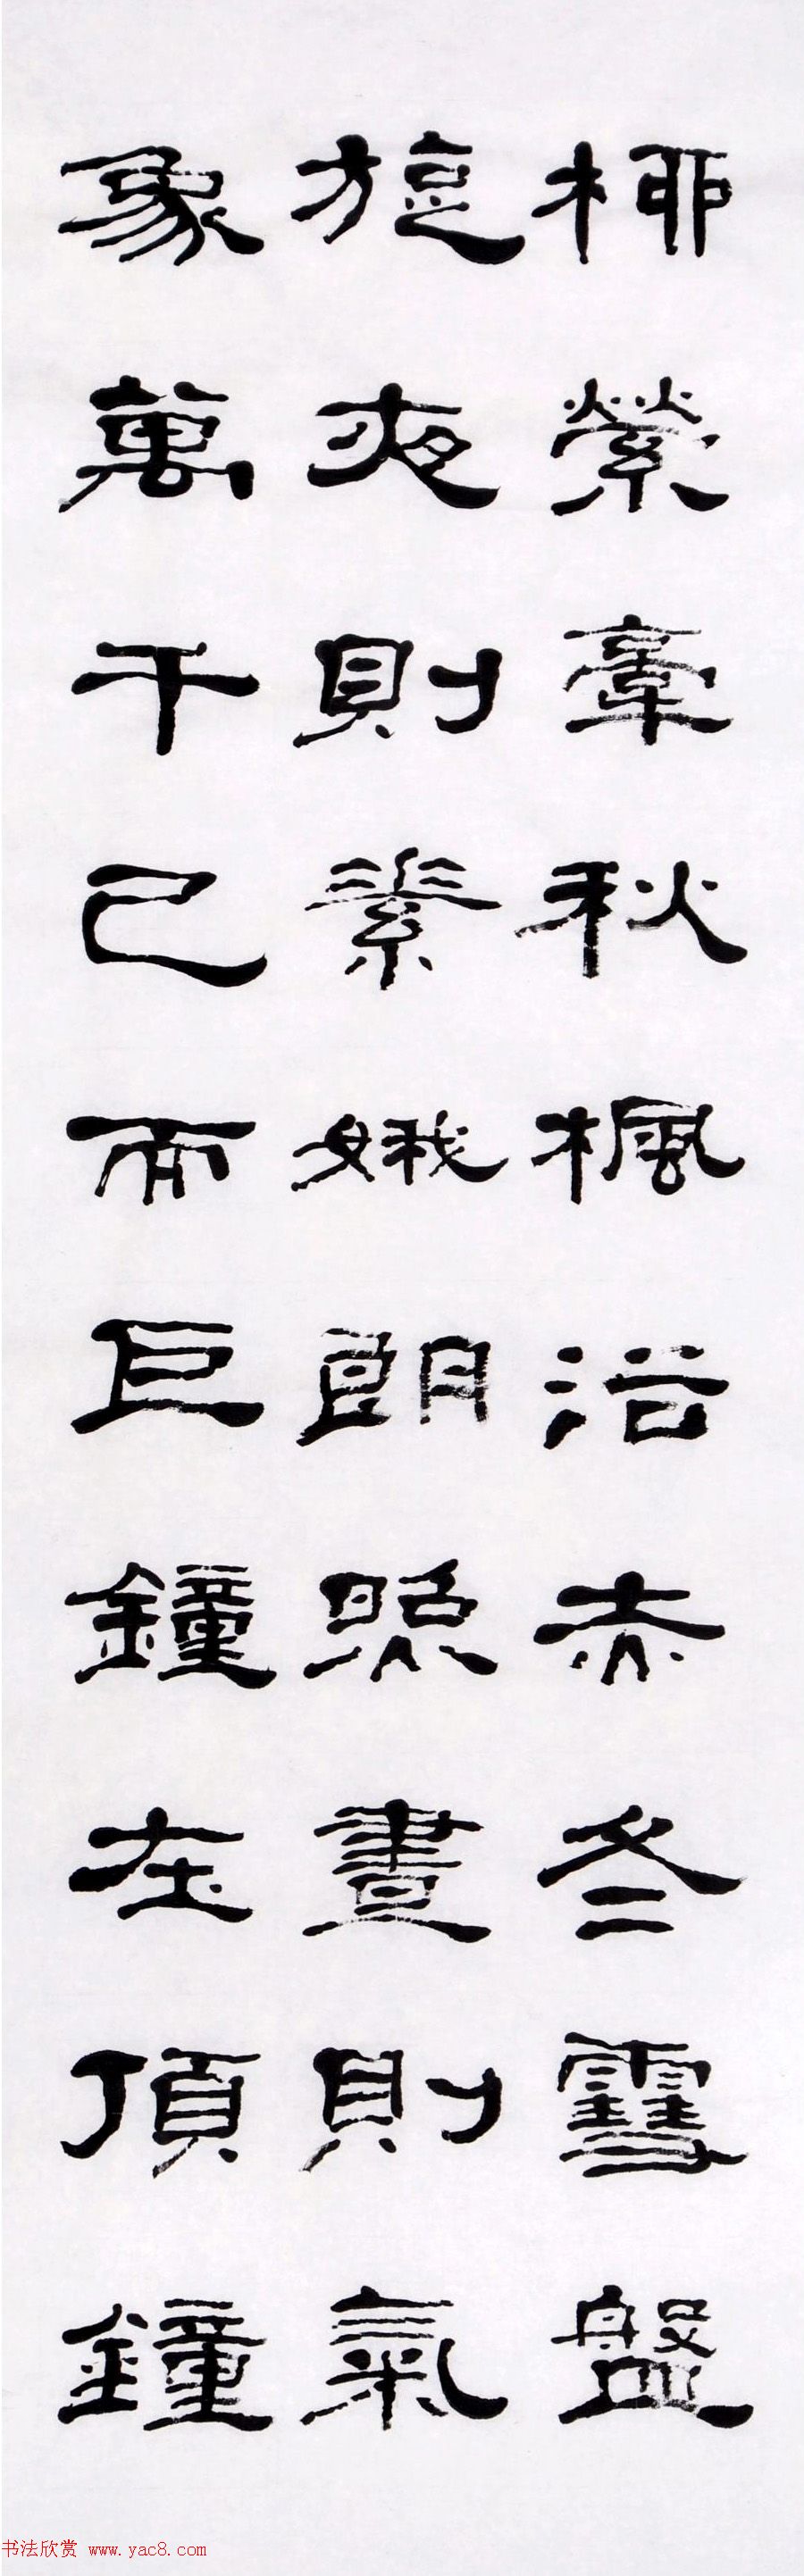 柳縈牽秋楓浴赤冬雪盤
旋夜則素娥朗照晝則氣
象萬千已而巨鐘在頂鐘
书法欣赏 www.yac8.com